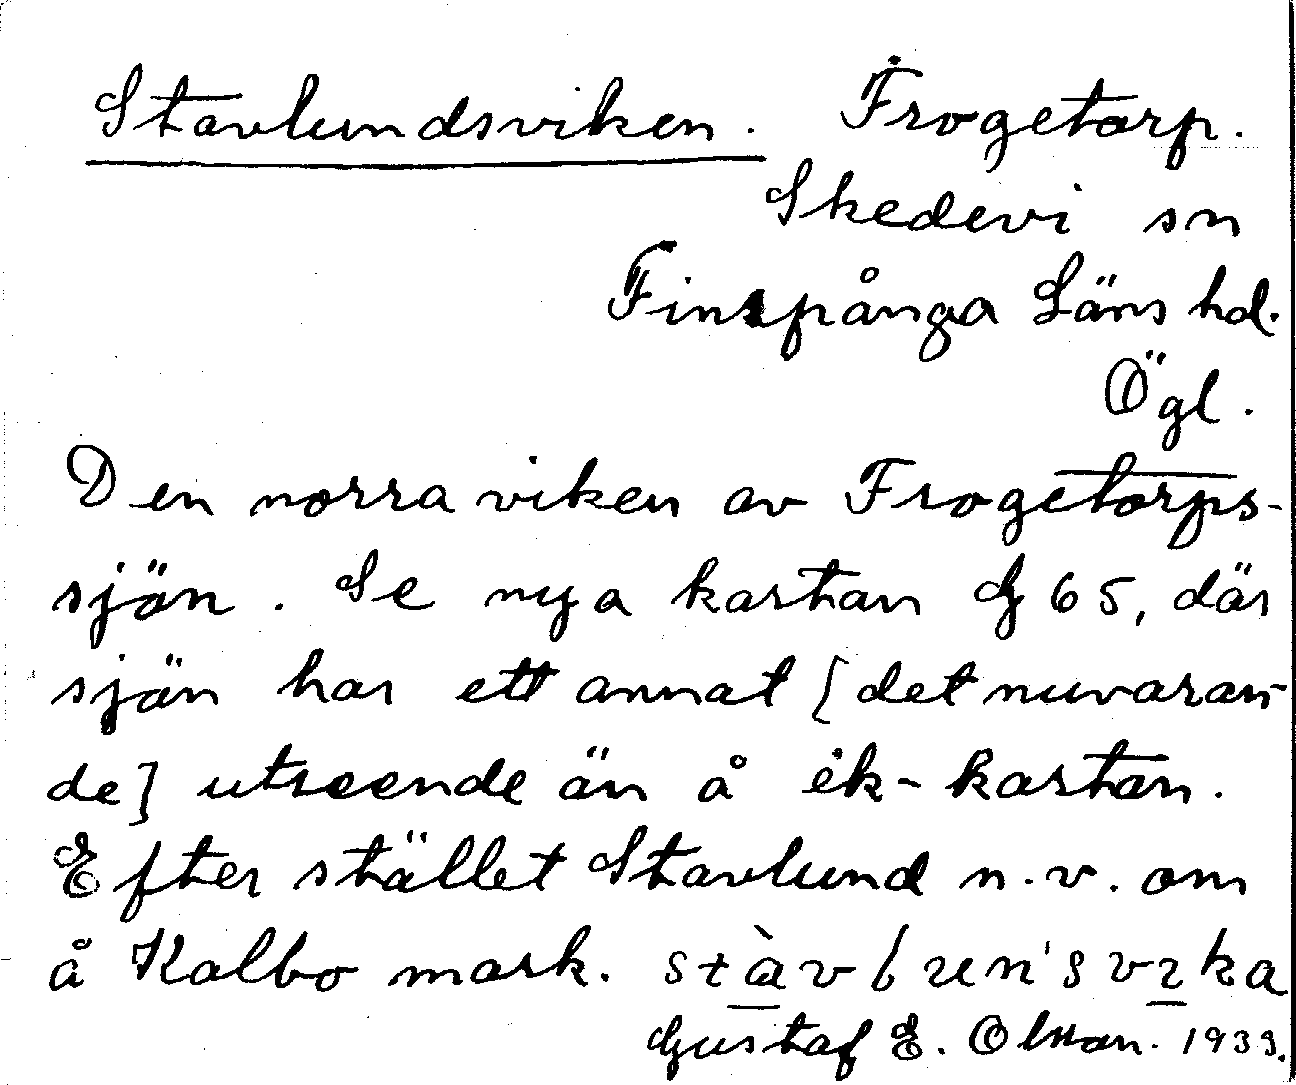 Stavlundsviken. Frogetorp.
Skedevi sn
Finspånga Läns hd.
Ögl.
Den norra viken av Frogetorps-
sjön. Se nya kartan G 65, där
sjön har ett annat [det nuvaran-
de] utseende än å ek-kartan.
Efter stället Stavlund n.v. om
å Kalbo mark.
Gustaf E. Olsson. 1933.